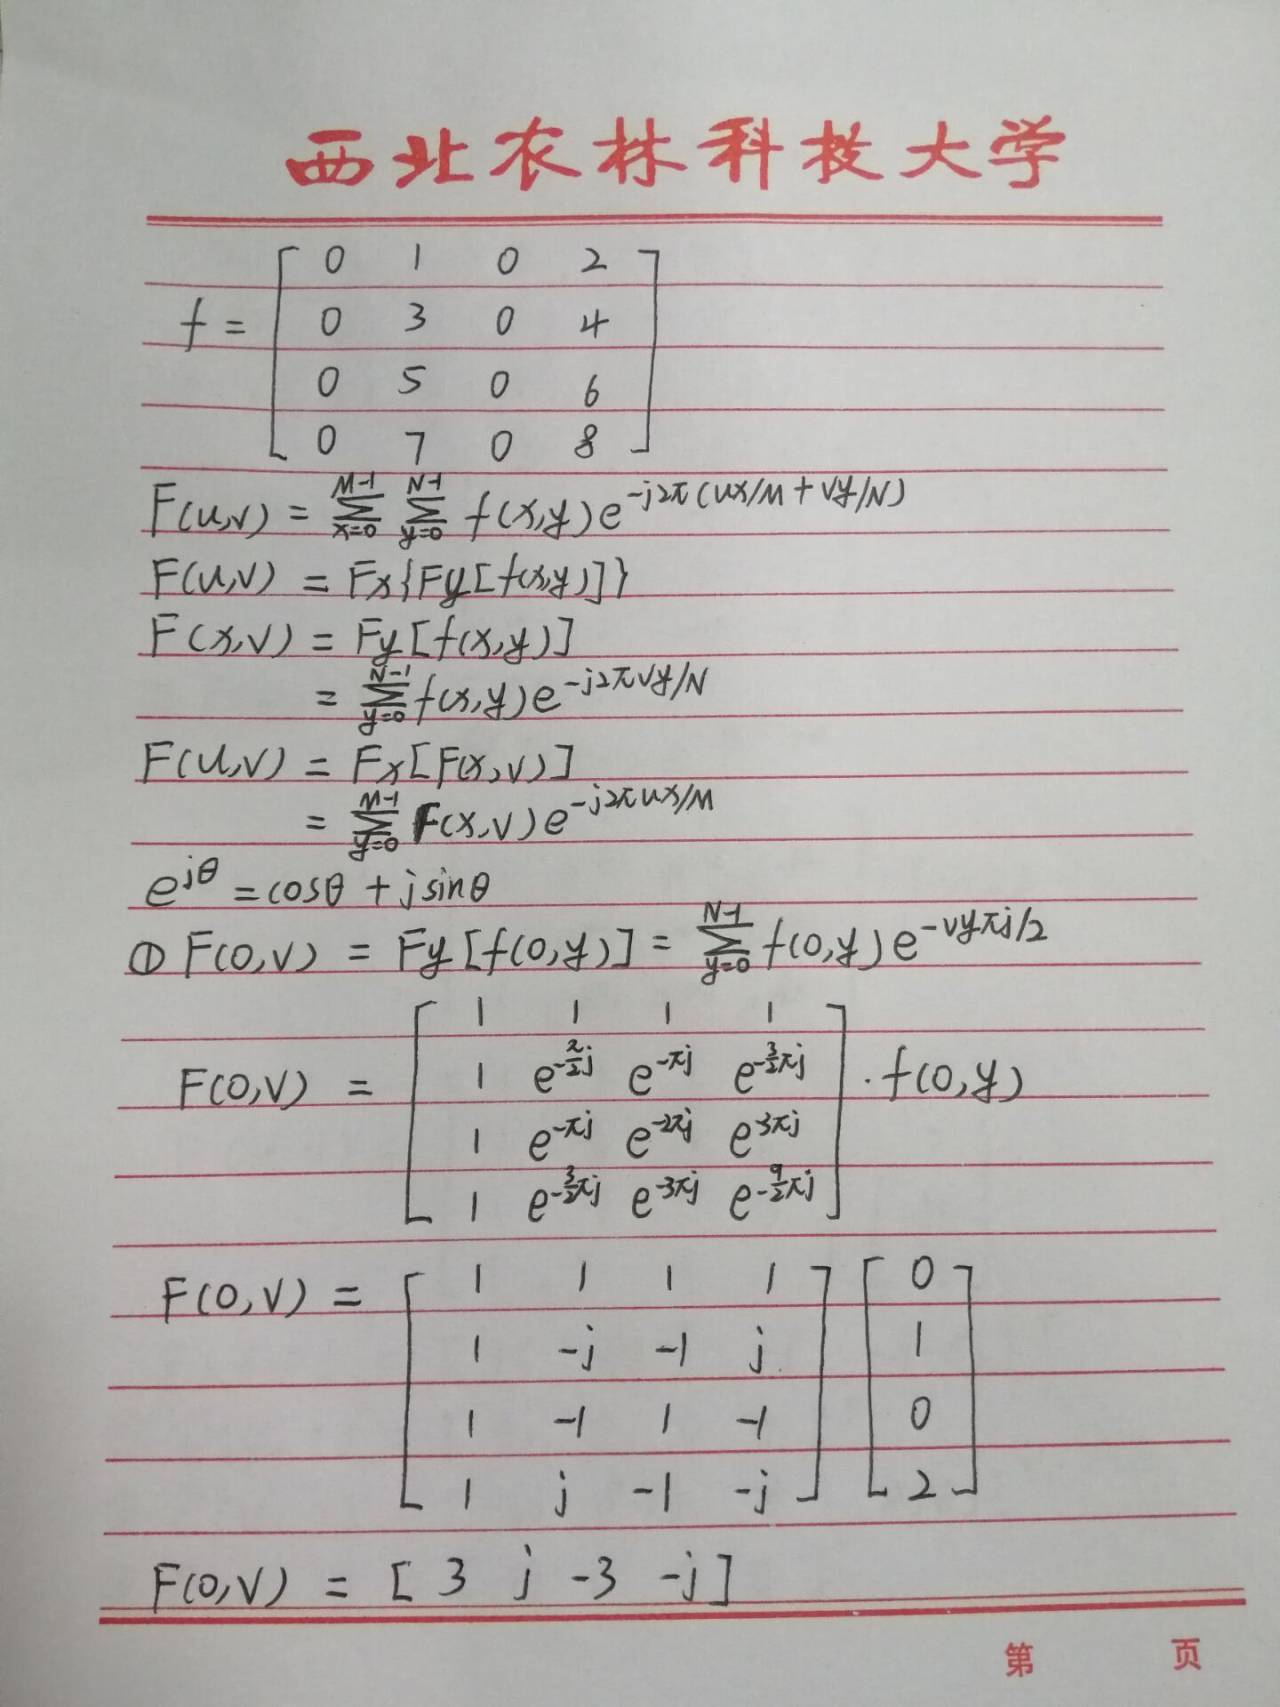 西北农林科技大学
f = [ 0 1 0 2
0 3 0 4
0 5 0 6
0 7 0 8 ]
F(u,v) = ∑_{x=0}^{M-1} ∑_{y=0}^{N-1} f(x,y)e^{-j2π(ux/M + vy/N)}
F(u,v) = Fx{Fy[f(x,y)]}
F(x,v) = Fy[f(x,y)]
= ∑_{y=0}^{N-1} f(x,y)e^{-j2πvy/N}
F(u,v) = Fx[F(x,v)]
= ∑_{y=0}^{M-1} F(x,v)e^{-j2πux/M}
e^{jθ} = cosθ + jsinθ
① F(0,v) = Fy[f(0,y)] = ∑_{y=0}^{N-1} f(0,y)e^{-vyπj/2}
F(0,v) = [ 1 1 1 1
1 e^{-\frac{π}{2}j} e^{-πj} e^{-\frac{3}{2}πj}
1 e^{-πj} e^{-2πj} e^{-3πj}
1 e^{-\frac{3}{2}πj} e^{-3πj} e^{-\frac{9}{2}πj} ] · f(0,y)
F(0,v) = [ 1 1 1 1
1 -j -1 j
1 -1 1 -1
1 j -1 -j ] [ 0
1
0
2 ]
F(0,v) = [ 3 j -3 -j ]
第 页